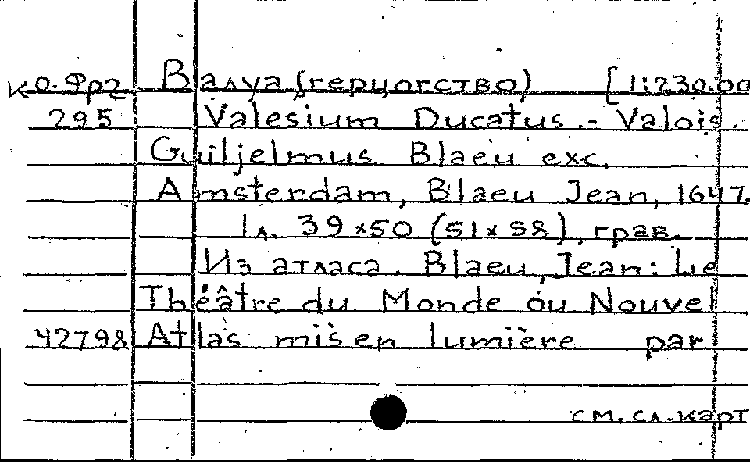 К О-Фр2 Валуа (герцогство) [1:230.00
295 Valesium Ducatus. - Valois.
Guiljelmus Blaeu exc.
Amsterdam, Blaeu Jean, 1647.
1 л. 39×50 (51×58), грав.
Из атласа. Blaeu, Jean: Le
Théâtre du Monde ou Nouvel
42798 Atlas mis en lumière par
см. сл. карт